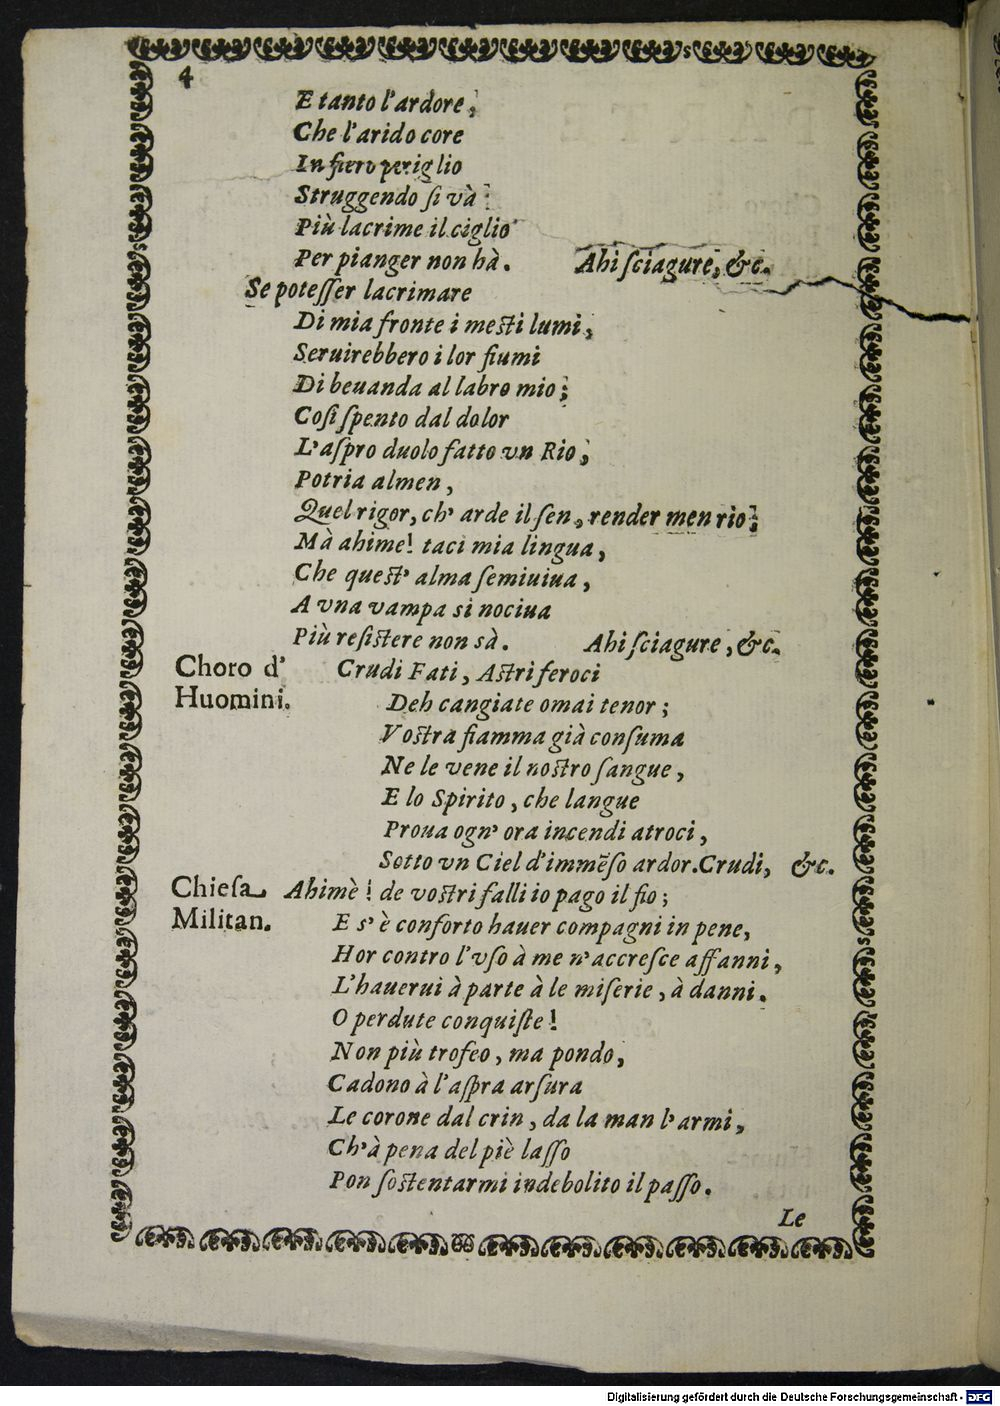 4
E tanto l'ardore;
Che l'arido core
In fiero periglio
Struggendo ſi và:
Più lacrime il ciglio
Per pianger non hà. Ahi ſciagure, &c.
Se poteſſer lacrimare
Di mia fronte i meſti lumi,
Seruirebbero i lor fiumi
Di beuanda al labro mio;
Coſi ſpento dal dolor
L'aſpro duolo fatto vn Rio,
Potria almen,
Quel rigor, ch' arde il ſen, render men rio;
Mà ahime! taci mia lingua,
Che queſt' alma ſemiuiua,
A vna vampa si nociua
Più reſiſtere non sà. Ahi ſciagure, &c.
Choro d' Crudi Fati, Aſtri feroci
Huomini. Deh cangiate omai tenor;
Voſtra fiamma già conſuma
Ne le vene il noſtro ſangue,
E lo Spirito, che langue
Proua ogn' ora incendi atroci,
Sotto vn Ciel d'immẽſo ardor. Crudi, &c.
Chieſa Ahimè! de voſtri falli io pago il fio;
Militan. E s'è conforto hauer compagni in pene,
Hor contro l'vſo à me n'accreſce affanni,
L'hauerui à parte à le miſerie, à danni.
O perdute conquiſte!
Non più trofeo, ma pondo,
Cadono à l'aſpra arſura
Le corone dal crin, da la man l'armi,
Ch'à pena del piè laſſo
Pon ſoſtentarmi indebolito il paſſo.
Le
Digitalisierung gefördert durch die Deutsche Forschungsgemeinschaft - DFG